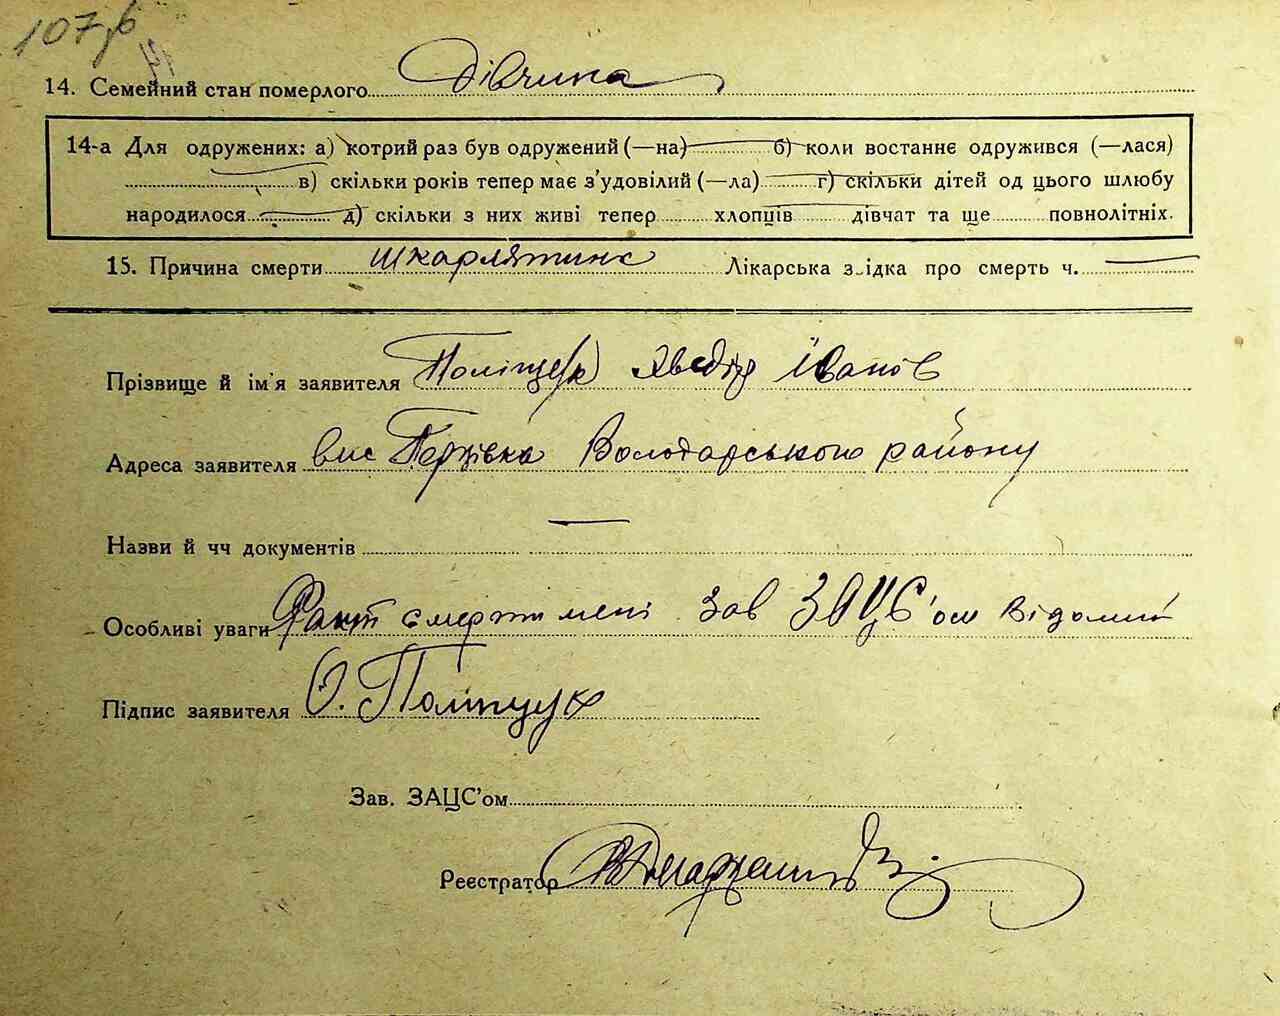 14. Семейний стан померлого дівчина
14-а Для одружених: а) котрий раз був одружений (—на) б) коли востаннє одружився (—лася)
в) скільки років тепер має з’удовілий (—ла) г) скільки дітей од цього шлюбу
народилося д) скільки з них живі тепер хлопців дівчат та ще повнолітніх.
15. Причина смерти шкарлятина Лікарська з ідка про смерть ч.
Прізвище й ім’я заявителя Поліщук Іванов
Адреса заявителя вис Володарського району
Назви й чч документів
Особливі уваги Факт смерти мені зав ЗАЦС’ом відомий
Підпис заявителя О. Поліщук
Зав. ЗАЦС’ом
Реєстратор